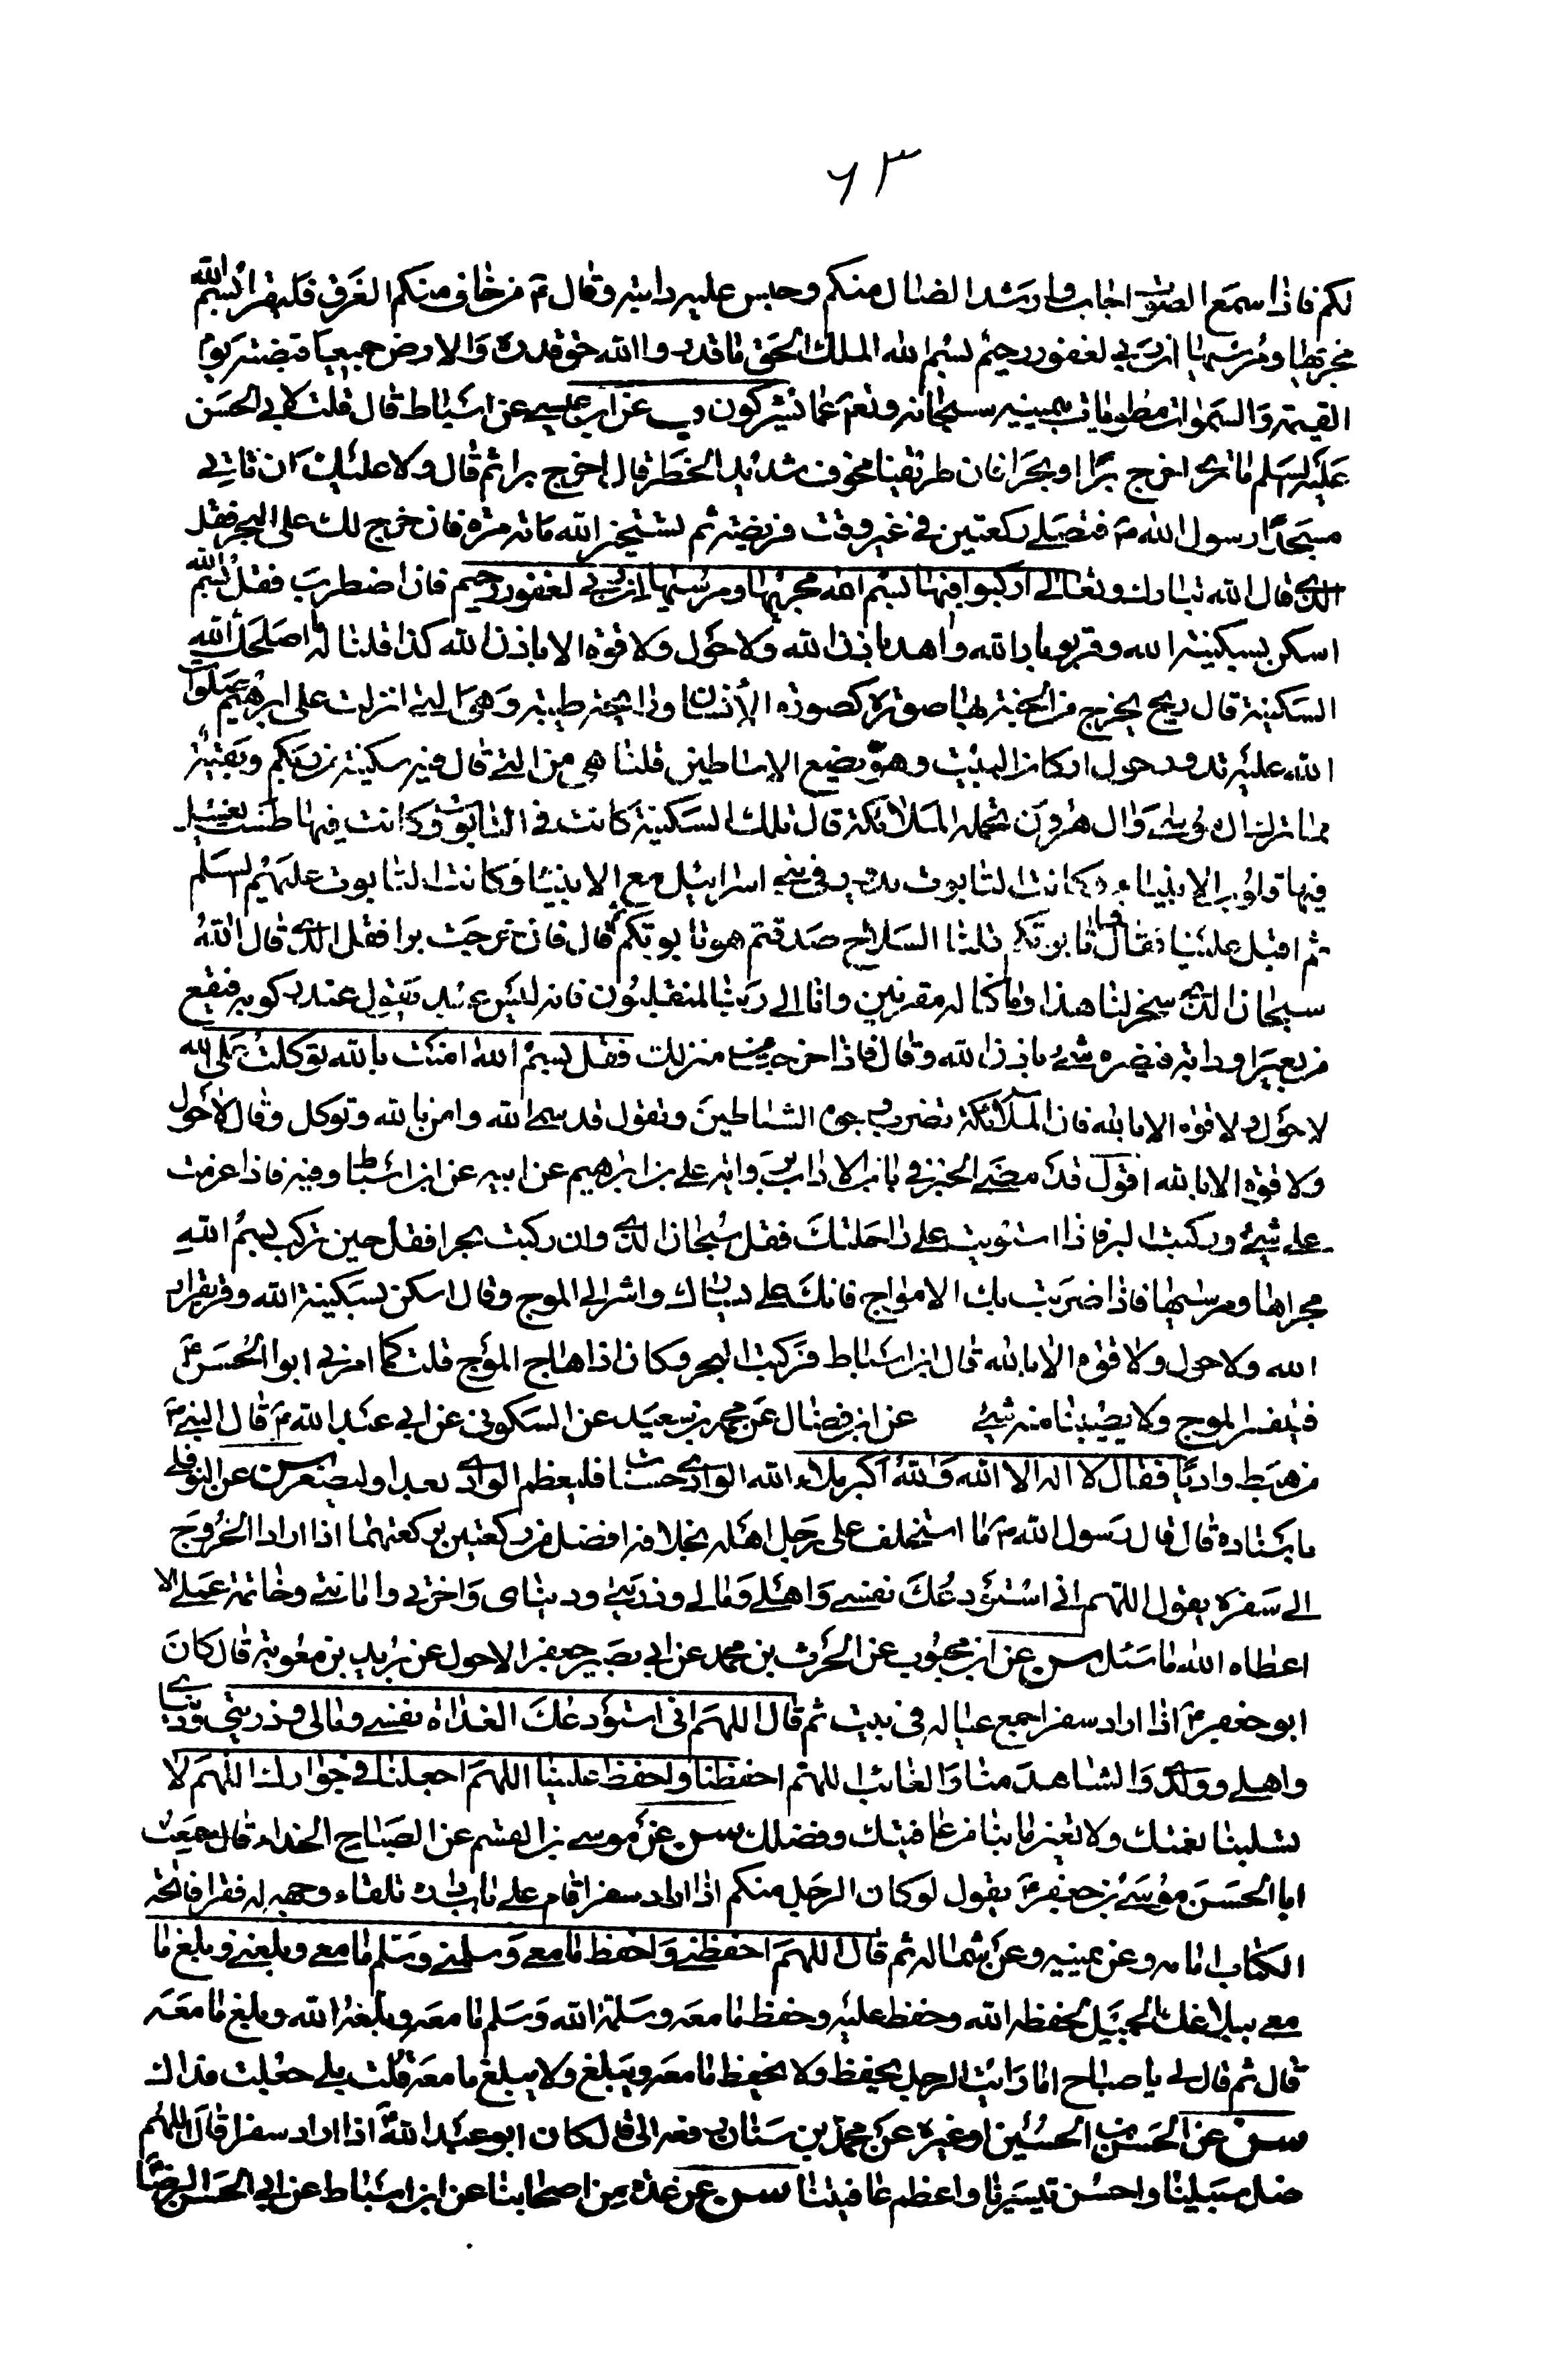 ٦٣
لكم فاذا سمع الصوت اجاب وارشد الضال منكم وحبس عليه دابته وقال ع من خاف منكم الغرق فليقرا بسم الله
مجريها ومرسيها ان ربي لغفور رحيم بسم الله الملك الحق ما قدروا الله حق قدره والارض جميعا قبضته يوم
القيمة والسموات مطويات بيمينه سبحانه وتعالى عما يشركون يب عن ابن عيسى عن اسباط قال قلت لابي الحسن
عليه السلم ما ترى اخرج برا او بحرا فان طريقنا مخوف شديد الخطر قال اخرج برا ثم قال ولا عليك ان تاتي
مسجد رسول الله ص فتصلي ركعتين في غير وقت فريضة ثم تستخير الله مائة مرة فان خرج لك على البحر فقل
الذي قال الله تبارك وتعالى اركبوا فيها بسم الله مجريها ومرسيها ان ربي لغفور رحيم فاذا اضطرب فقل بسم الله
اسكن بسكينة الله وقر بوقار الله واهدا باذن الله ولا حول ولا قوة الا باذن الله كذا قلنا له اصلحك الله ما
السكينة قال ريح تخرج من الجنة لها صورة كصورة الانسان ورائحة طيبة وهي التي انزلت على ابرهيم صلوات
الله عليه تدور حول اركان البيت وهو يضع الاساطين قلنا هي من التي قال فيه سكينة من ربكم وبقية
مما ترك ال موسى وال هرون تحمله الملائكة قال تلك السكينة كانت في التابوت وكانت فيها طست يغسل
فيها قلوب الانبياء وكانت التابوت تدور في بني اسرائيل مع الانبياء وكانت التابوت عليهم السلم
ثم اقبل علينا فقال فما تابوتكم قلنا السلاح صدقتم هو تابوتكم قال فان خرجت برا فقل الذي قال الله
سبحان الذي سخر لنا هذا وما كنا له مقرنين وانا الى ربنا لمنقلبون فانه ليس عبد يقول عند ركوبه فيقع
من بعير او دابة فيضره شيء باذن الله وقال فاذا خرجت من منزلك فقل بسم الله امنت بالله توكلت على الله
لا حول ولا قوة الا بالله فان الملائكة تضرب وجوه الشياطين وتقول قد سمى الله وامن بالله وتوكل وقال لا حول
ولا قوة الا بالله اقول قد مضى الخبر في باب الاداب برواية علي بن ابرهيم عن ابيه عن ابن اسباط وفيه فاذا عزمت
على شيء وركبت البر فاذا استويت على راحلتك فقل سبحان الذي وان ركبت بحرا فقل حين تركب بسم الله
مجراها ومرسيها فاذا ضربت بك الامواج فاتك على يسارك واشر الى الموج وقال اسكن بسكينة الله وقر بقرار
الله ولا حول ولا قوة الا بالله قال ابن اسباط فركبت البحر وكان اذا هاج الموج قلت كما امرني ابو الحسن ع
فيتنفس الموج ولا يصيبنا منه شيء عن ابن فضال عن محمد بن سعيد عن السكوني عن ابي عبد الله ع قال النبي ص
من هبط واديا فقال لا اله الا الله والله اكبر ملاء الله الوادي حسنات فليعظم الوادي بعد او ليصغر سن عن النوفلي
باسناده قال قال رسول الله ص ما استخلف على رجل اهله بخلافة افضل من ركعتين يركعهما اذا اراد الخروج
الى سفره يقول اللهم اني استودعك نفسي واهلي ومالي وذريتي ودنياي واخرتي وامانتي وخاتمة عملي الا
اعطاه الله ما سئل سن عن ابن محبوب عن الحرث بن محمد عن ابي بصير جعفر الاحول عن بريد بن معوية قال كان
ابو جعفر ع اذا اراد سفرا جمع عياله في بيت ثم قال اللهم اني استودعك الغداة نفسي ومالي وذريتي ودنياي
واهلي وولدي والشاهد منا والغائب اللهم احفظنا واحفظ علينا اللهم اجعلنا في جوارك اللهم لا
تسلبنا نعمتك ولا تغير ما بنا من عافيتك وفضلك سن عن موسى بن القسم عن الصباح الحذاء قال سمعت
ابا الحسن موسى بن جعفر ع يقول لو كان الرجل منكم اذا اراد سفرا قام على باب داره تلقاء وجهه له فقرا فاتحة
الكتاب امامه وعن يمينه وعن شماله ثم قال اللهم احفظني واحفظ ما معي وسلمني وسلم ما معي وبلغني وبلغ ما
معي ببلاغك الجميل لحفظه الله وحفظ عليه وحفظ ما معه وسلمه الله وسلم ما معه وبلغه الله وبلغ ما معه
قال ثم قال لي يا صباح اما رايت الرجل يحفظ ولا يحفظ ما معه ويبلغ ولا يبلغ ما معه قلت بلى جعلت فداك
سن عن الحسن بن الحسين او غيره عن محمد بن سنان رفعه الى قال كان ابو عبد الله ع اذا اراد سفرا قال اللهم
خل سبيلنا واحسن تيسيرنا واعظم عافيتنا سن عن عدة من اصحابنا عن ابن اسباط عن ابي الحسن الرضا